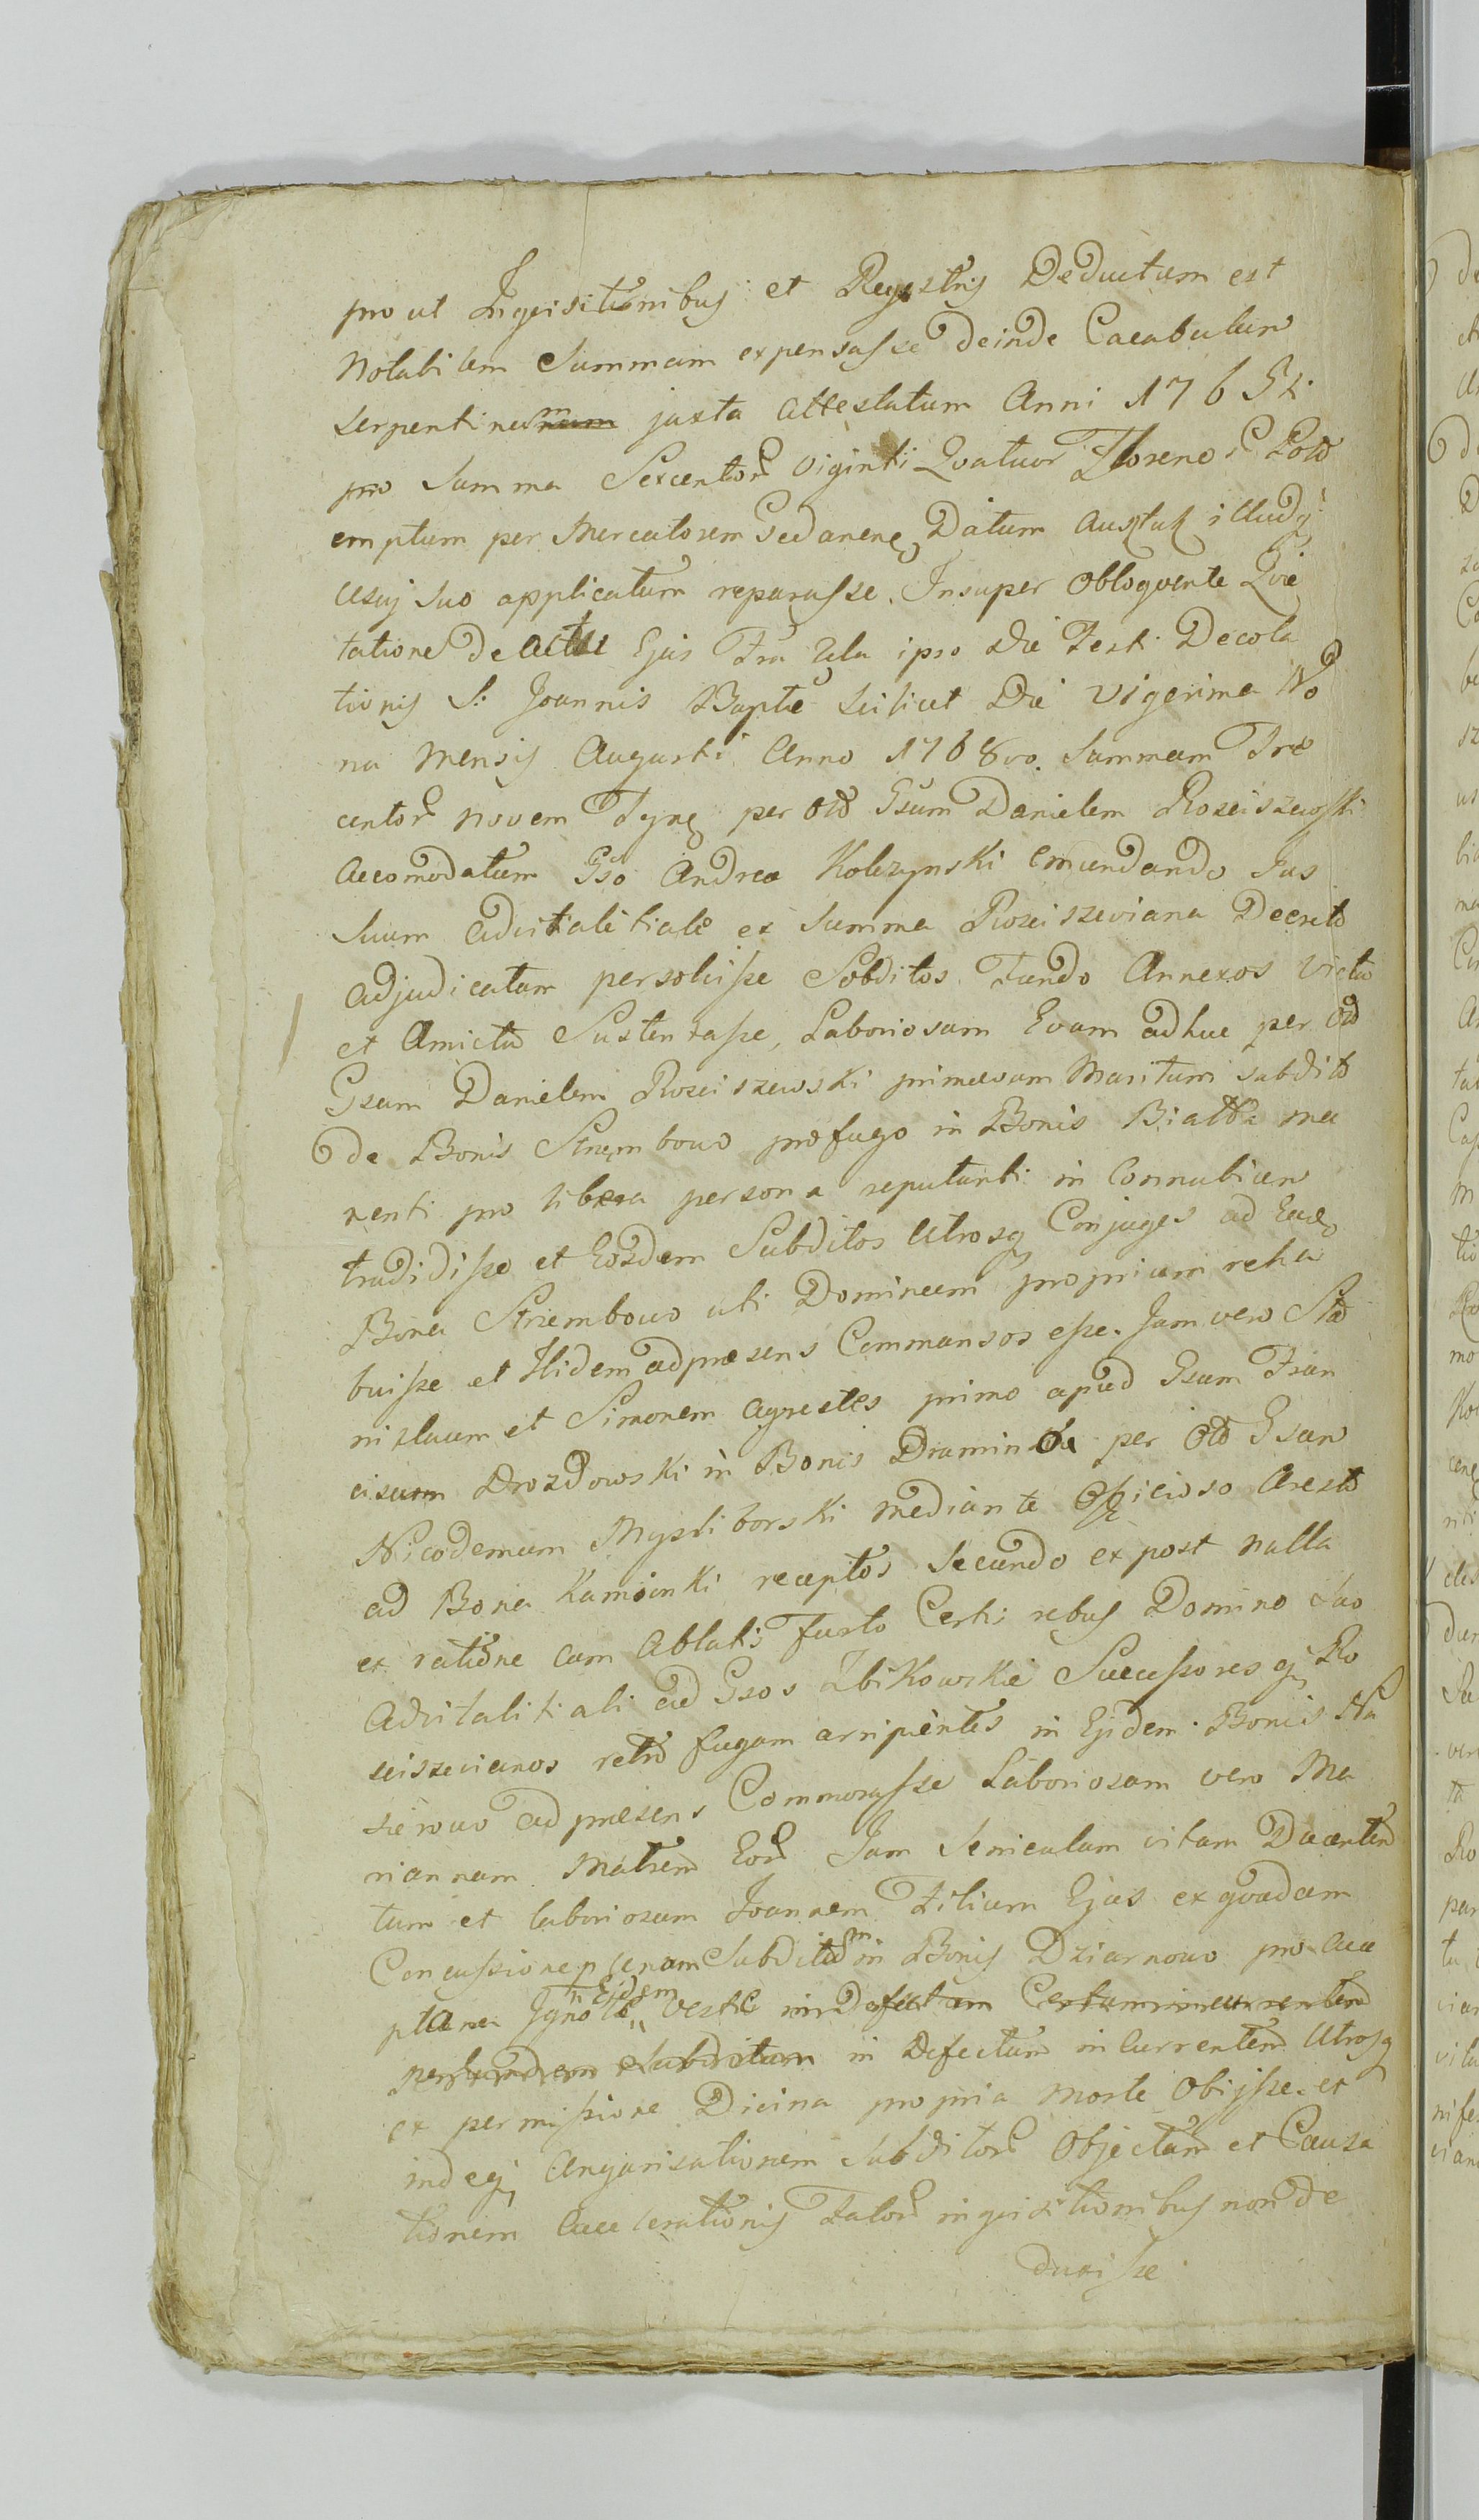 pro ut Inqvisitionibus et Regestris Deductum est
Notabilem Summam expensasse deinde Cacabulum
serpentineum juxta attestatum Anni 1765t.
pro Summa Sexcentor viginti Qvatuor Florenor Pol
emptum per Mercatorem Gedanen Datum illudq
Usuj suo applicatum reparasse. Insuper obloqvente Qvie
tatione De actu Ejus ipso Die Fest. Decola
tionis S. Joannis Baptae scilicet Die vigesima No
na Mensis Augusti Anno 1768vo. Summam Tre
centor novem Tynf per olo Gsum Danielem Rosciszewski
accomodatum Gso Andrea Kolczynski emundando Jus
suum advitalitiale ex Summa Rosciszeviana Decreto
adjudicatam persolvisse Subditos Fundo Annexos victu
et Amictu Sustentasse, Laboriosam Evam adhuc per olo
Gsum Danielem Rosciszewski primaevum Maritum subdito
de Bonis Strzembowo profugo in Bonis Bialka ma
nenti pro libera persona reputanti in Connubium
tradidisse et Eosdem Subditos Utrosq Conjuges ad Ead
Bona Strzembowo uti Domineum proprium reha
buisse et Ibidem ad praesens Commansos esse. Jam vero Sta
nislaum et Simonem agrestes primo apud Gsum Fran
ciscum Drozdowski in Bonis Dramin per olo Gsum
Nicodemum Mysliborski mediante officioso Aresto
ad Bona Kamionki receptos secundo ex post nulla
ex ratione cum ablatis furto Certis rebus Domino suo
Advitalitiali ad Gsos Zbikowskie Successores q Ro
sciszevianos retro fugam arripientes in Ejsdem Bonis Na
sierowo ad praesens Commorasse Laboriosam vero Ma
riannam Matrem Eor Jam Seniculam vitam Ducentem
tum et laboriosum Joannem Filium Ejus ex qvadam
Concussione plenam Subditum in Bonis Dziarnowo pro acce
ptana in Ejdem veste in Defectum Certum incurrentem
per Eundem Subditum in Defectum incurrentem Utrosq
ex permissione Divina propria morte obijsse. et
indeq Angarisationem Subditor Objectam et Causa
tionem accelerationis Fator inqvisitionibus non de
duxisse